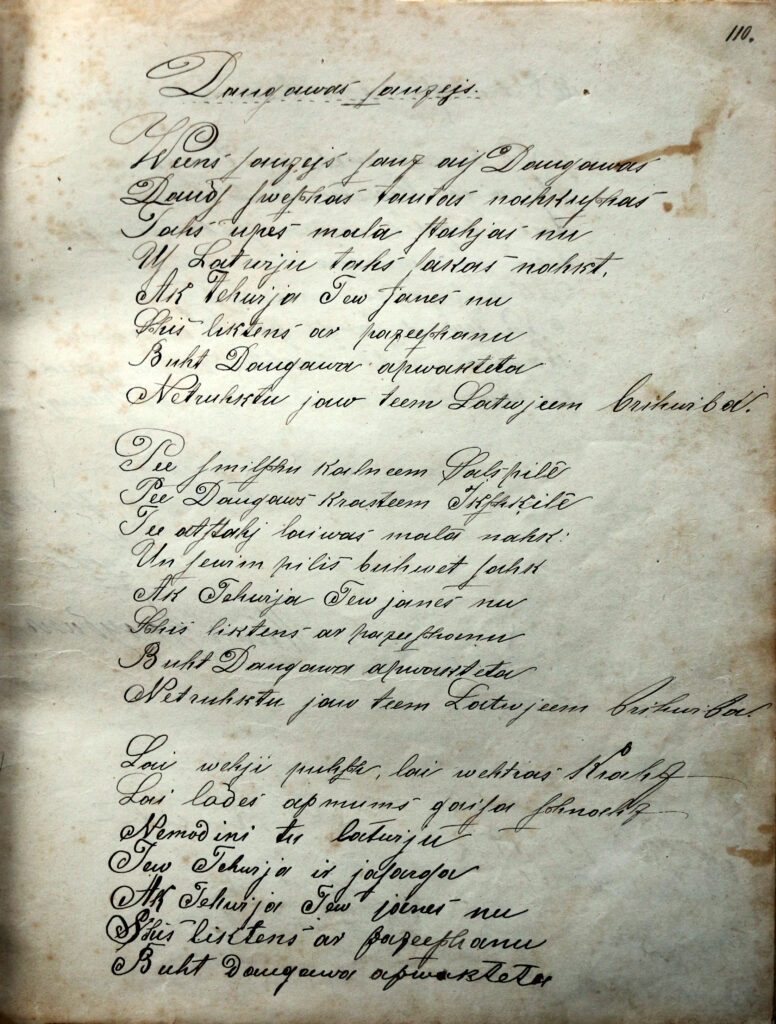 110.
Daugawas sauzejs.
Weens sauzejs sauz aiſ Daugawas
Dauds sweſchas tautas nahkuſchas
Tahs upes malā ſtahjas nu
Uſ Latwiju tahs sakas nahkt.
Ak Tehwija Tew janes nu
Schis liktens ar pazeeſchanu
Buht Daugawa apwakteta
Netruhktu jaw teem Latwjeem brihwibā.
Pee smilſchu kalneem Salspilē
Pee Daugaws krasteem Ikſchkilē
Tee atſtahj laiwas malā nahk
Un sewim pilis buhwet sahk
Ak Tehwija Tew janes nu
Schis liktens ar pazeeſchanu
Buht Daugawa apwakteta
Netruhktu jaw teem Latwjeem brihwiba.
Lai wehji puhſch, lai wehtras Krahz
Lai lodes ap mums gaisa ſchnahz
Nemodini tu latwiju
Tew Tehwija ir jasarga
Ak Tehwija Tew janes nu
Schis liktens ar pazeeſchanu
Buht Daugawa apwakteta